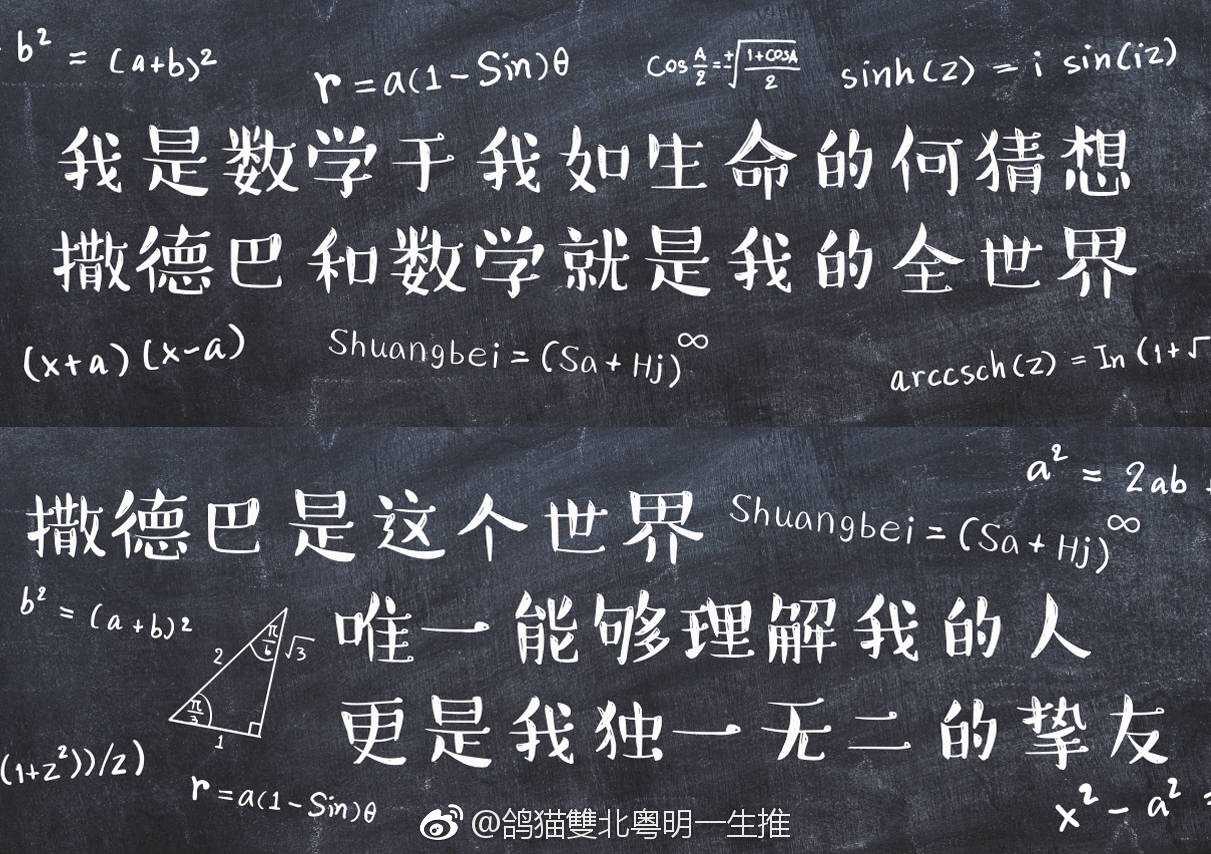 b² = (a+b)²
r = a(1 - Sin)θ
Cos A/2 = ±√(1+cosA)/2
sinh(z) = i sin(iz)
我是数学于我如生命的何猜想
撒德巴和数学就是我的全世界
(x+a)(x-a)
Shuangbei = (Sa + Hj)^∞
arccsch(z) = In (1+√
a² = 2ab
撒德巴是这个世界
Shuangbei = (Sa + Hj)^∞
b² = (a+b)²
2
π/6
√3
唯一能够理解我的人
π/3
1
更是我独一无二的挚友
(1+z²))/z)
r = a(1 - Sin)θ
x² - a² =
@鸽猫雙北粤明一生推